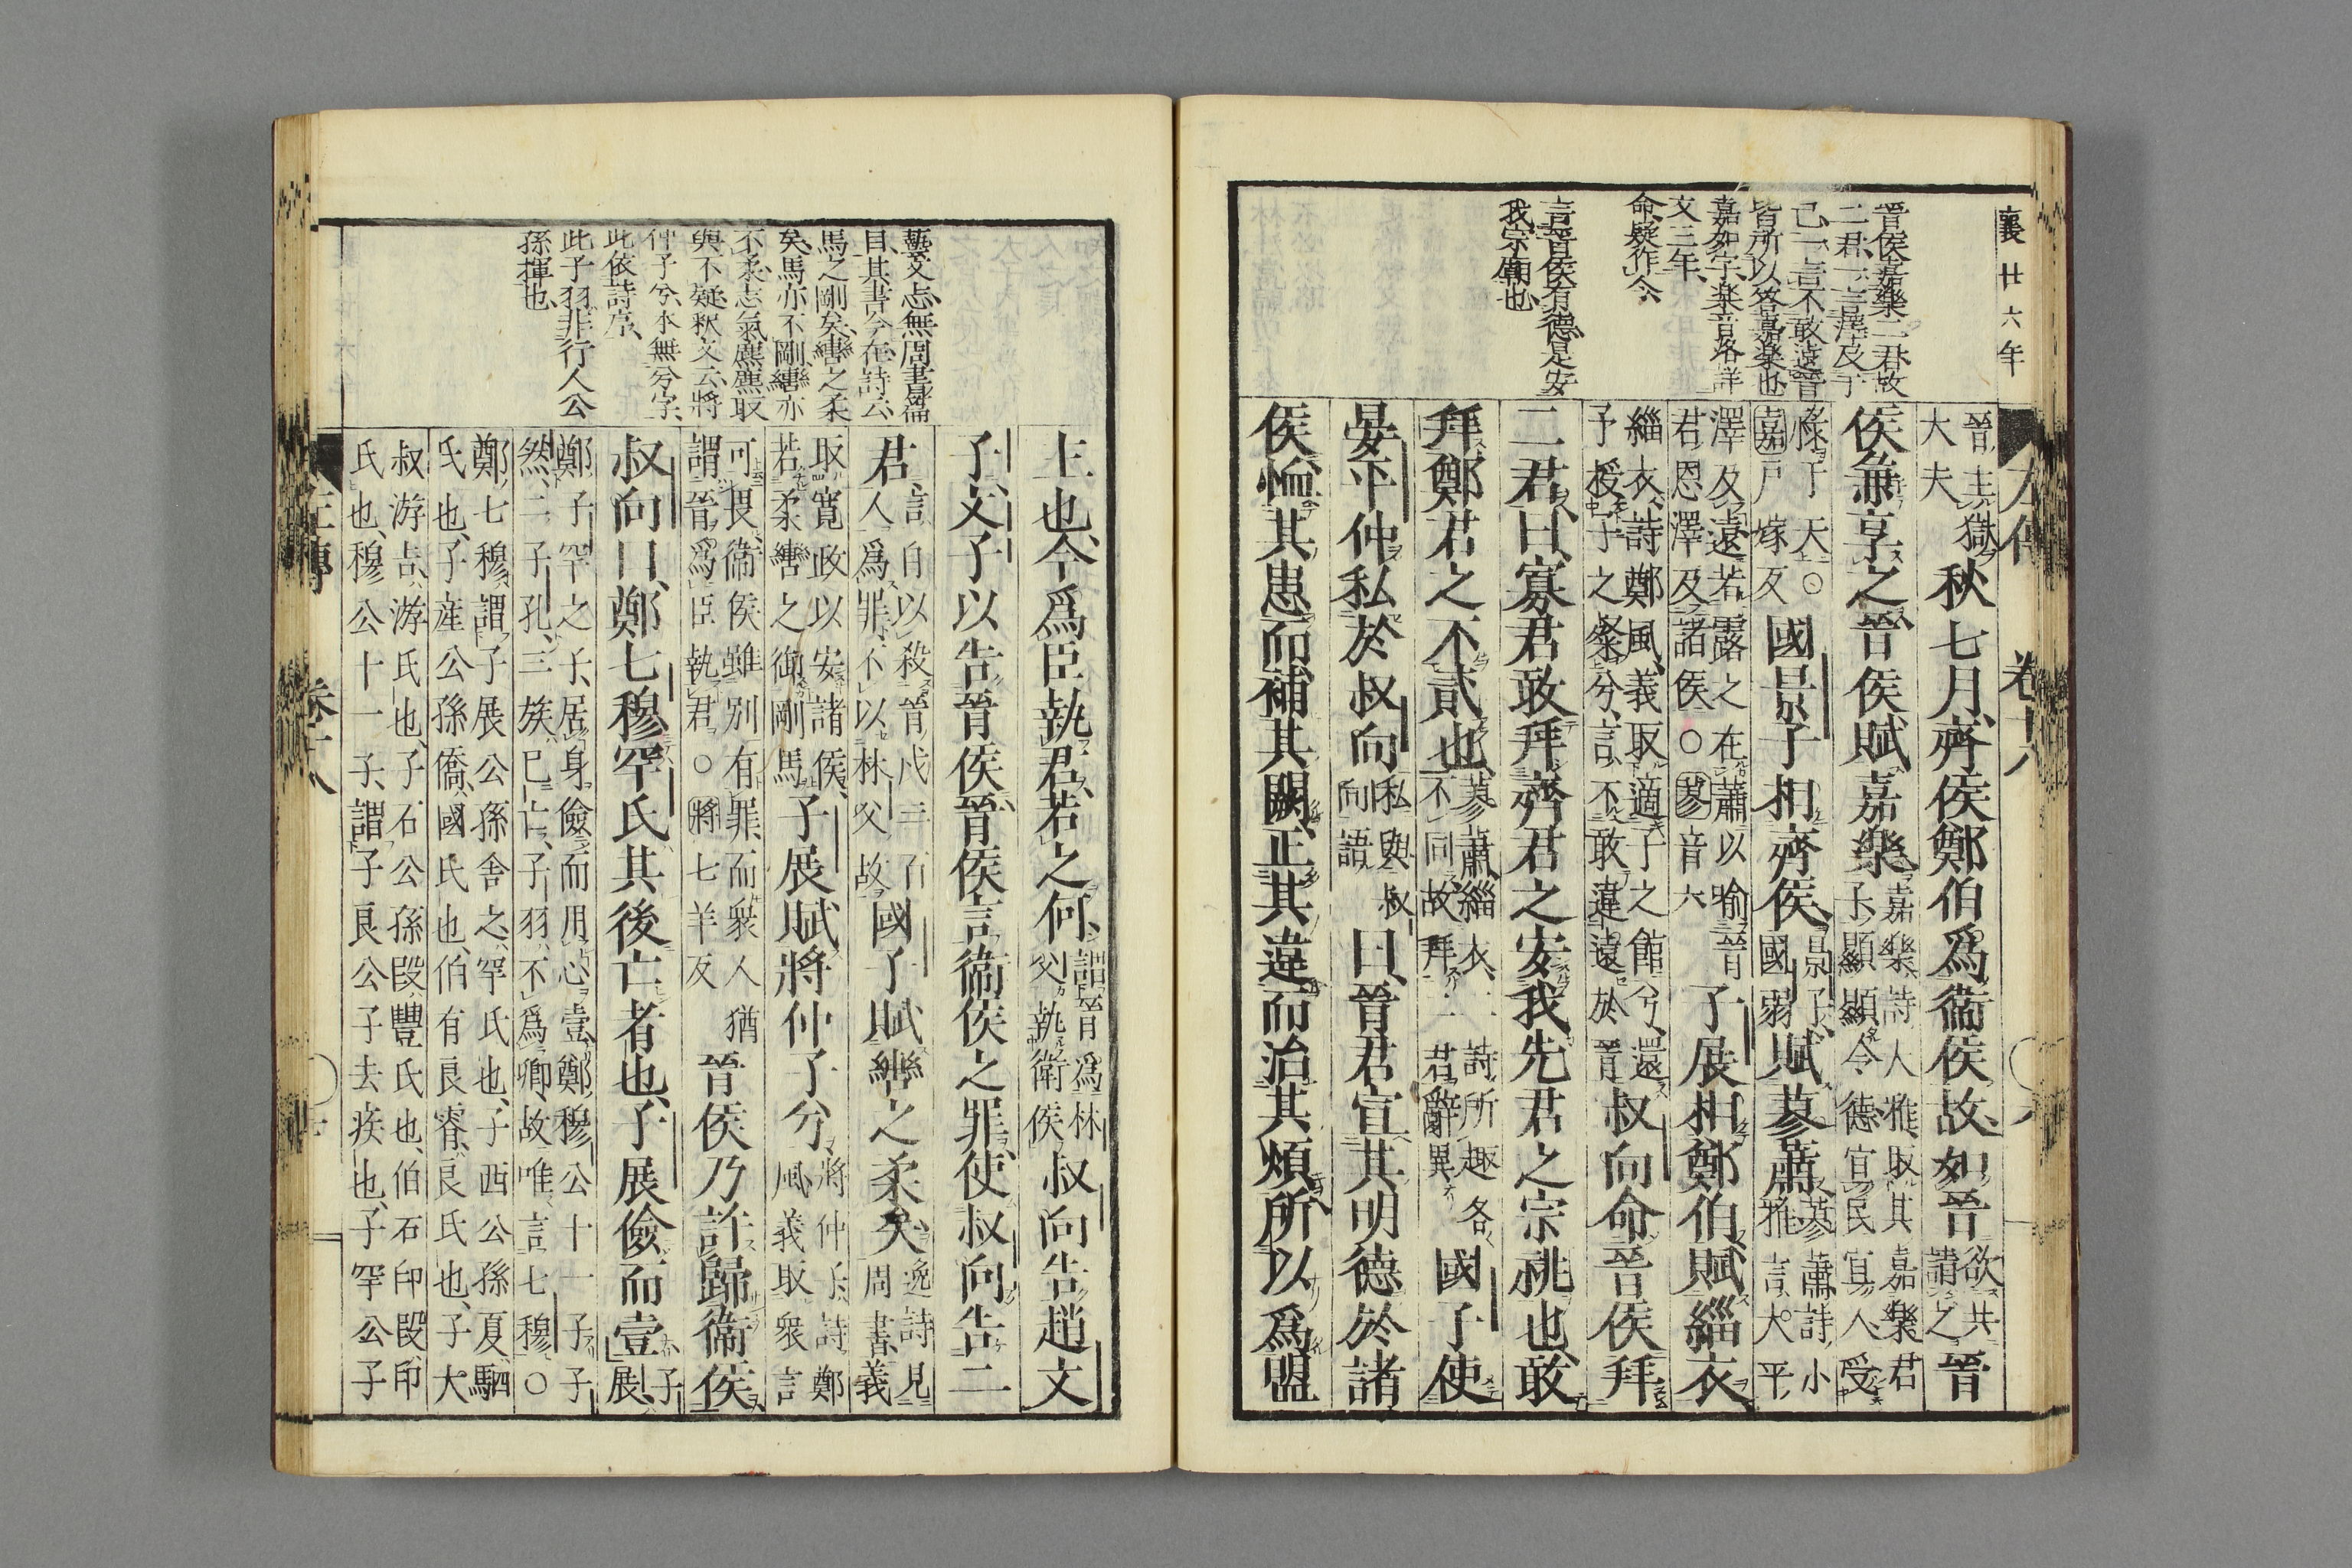 襄廿六年
晉侯嘉樂二君故
二君一言澤及于
己一言不敢違晉
皆所以答嘉樂也
嘉如字樂音洛詳
文三年
命疑作今
言晉侯有德是安
我宗廟也
晉主獄大夫秋七月齊侯鄭伯爲衞侯故如晉欲共請之晉
侯兼享之晉侯賦嘉樂嘉樂詩大雅取其嘉樂君子顯顯令德宜民宜人受
祿于天○嘉戸嫁反國景子相齊侯景子國弱賦蓼蕭蓼蕭詩小雅言大平
澤及遠若露之在蕭以喻晉君恩澤及諸侯○蓼音六子展相鄭伯賦緇衣
緇衣詩鄭風義取適子之館兮還予授子之粲兮言不敢違遠於晉叔向命晉侯拜
二君曰寡君敢拜齊君之安我先君之宗祧也敢
拜鄭君之不貳也蓼蕭緇衣二詩所趣各不同故拜二君辭異國子使
晏平仲私於叔向私與叔向語曰晉君宣其明德於諸
侯恤其患而補其闕正其違而治其煩所以爲盟
藝文志無周書篇
目其書今在詩云
馬之剛矣轡之柔
矣馬亦不剛轡亦
不柔志氣麃麃取
與不疑釈文云將
仲子兮本無兮字
此依詩序
此子羽非行人公
孫揮也
主也今爲臣執君若之何謂晉爲林父執衛侯叔向告趙文
子文子以告晉侯晉侯言衞侯之罪使叔向告二
君言自以殺晉戍三百人爲罪不以林父故國子賦轡之柔矣逸詩見周書義
取寬政以安諸侯若柔轡之御剛馬子展賦將仲子兮將仲子詩鄭風義取衆言
可畏衞侯雖別有罪而衆人猶謂晉爲臣執君○將七羊反晉侯乃許歸衞侯
叔向曰鄭七穆罕氏其後亡者也子展儉而壹子展
鄭子罕之子居身儉而用心壹鄭穆公十一子子然二子孔三族已亡子羽不爲卿故唯言七穆○
鄭七穆謂子展公孫舍之罕氏也子西公孫夏駟氏也子產公孫僑國氏也伯有良霄良氏也子大
叔游吉游氏也子石公孫段豐氏也伯石印段印氏也穆公十一子謂子良公子去疾也子罕公子